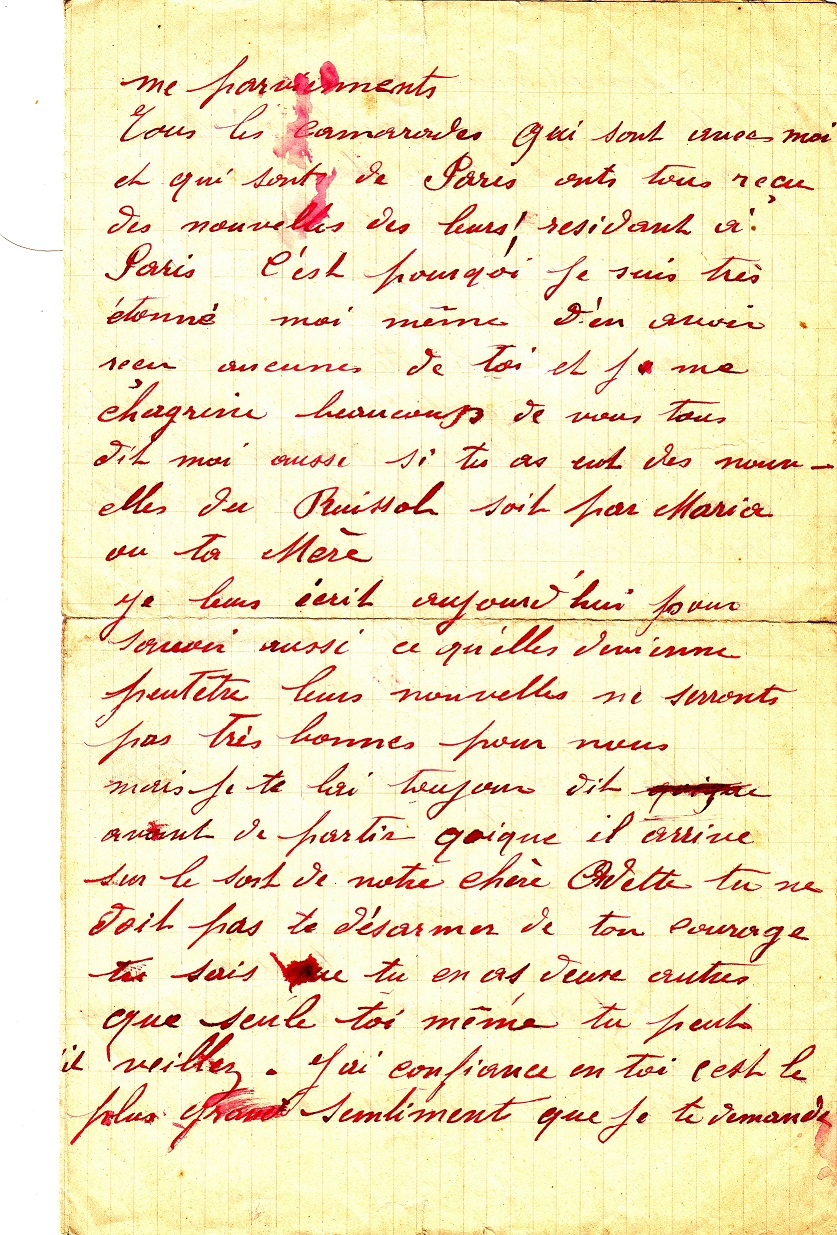 me parviennents
Tous les camarades qui sont avec moi
et qui sont de Paris onts tous reçu
des nouvelles des leurs residant à
Paris C'est pourqoi je suis très
étonné moi même d'en avoir
reçu aucunes de toi et je me
chagrine beaucoup de vous tous
dit moi aussi si tu as eut des nouv-
elles du Ruissol soit par Maria
ou ta Mère
je leurs écrit aujourd'hui pour
savoir aussi ce qu'elles devienne
peutêtre leurs nouvelles ne serronts
pas très bonnes pour nous
mais je te lai toujour dit
avant de partir qoique il arrive
sur le sort de notre chère Odette tu ne
doit pas te désarmer de ton courage
tu sais que tu en as deux autres
que seule toi même tu peut
veiller. J'ai confiance en toi c'est le
plus grand sentiment que je te demande